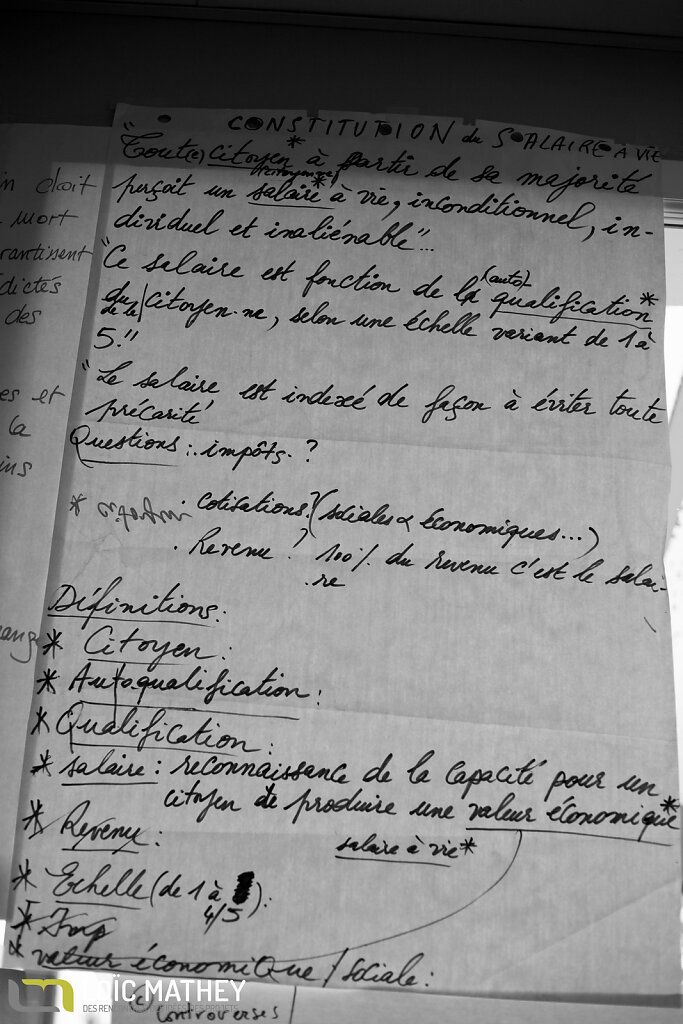 CONSTITUTION du SALAIRE À VIE
"Tout(e) citoyen* à partir de sa majorité
(citoyenne)
perçoit un salaire* à vie, inconditionnel, in-
dividuel et inaliénable"...
"Ce salaire est fonction de la (auto)- qualification*
du/de la citoyen·ne, selon une échelle variant de 1 à
5."
"Le salaire est indexé de façon à éviter toute
précarité
Questions : . impôts. ?
* cotisations? (sociales & économiques...)
. Revenu ? 100% du revenu c'est le salai-
re
Définitions :
* Citoyen :
* Autoqualification :
* Qualification :
* salaire : reconnaissance de la capacité pour un
citoyen de produire une valeur économique*
* Revenu :
salaire à vie*
* Echelle (de 1 à
4/5) :
* Imp
* valeur économique / sociale :
(c)
controverses
n doit
mort
rantissent
dictés
des
es et
la
ins
ange
LOÏC MATHEY